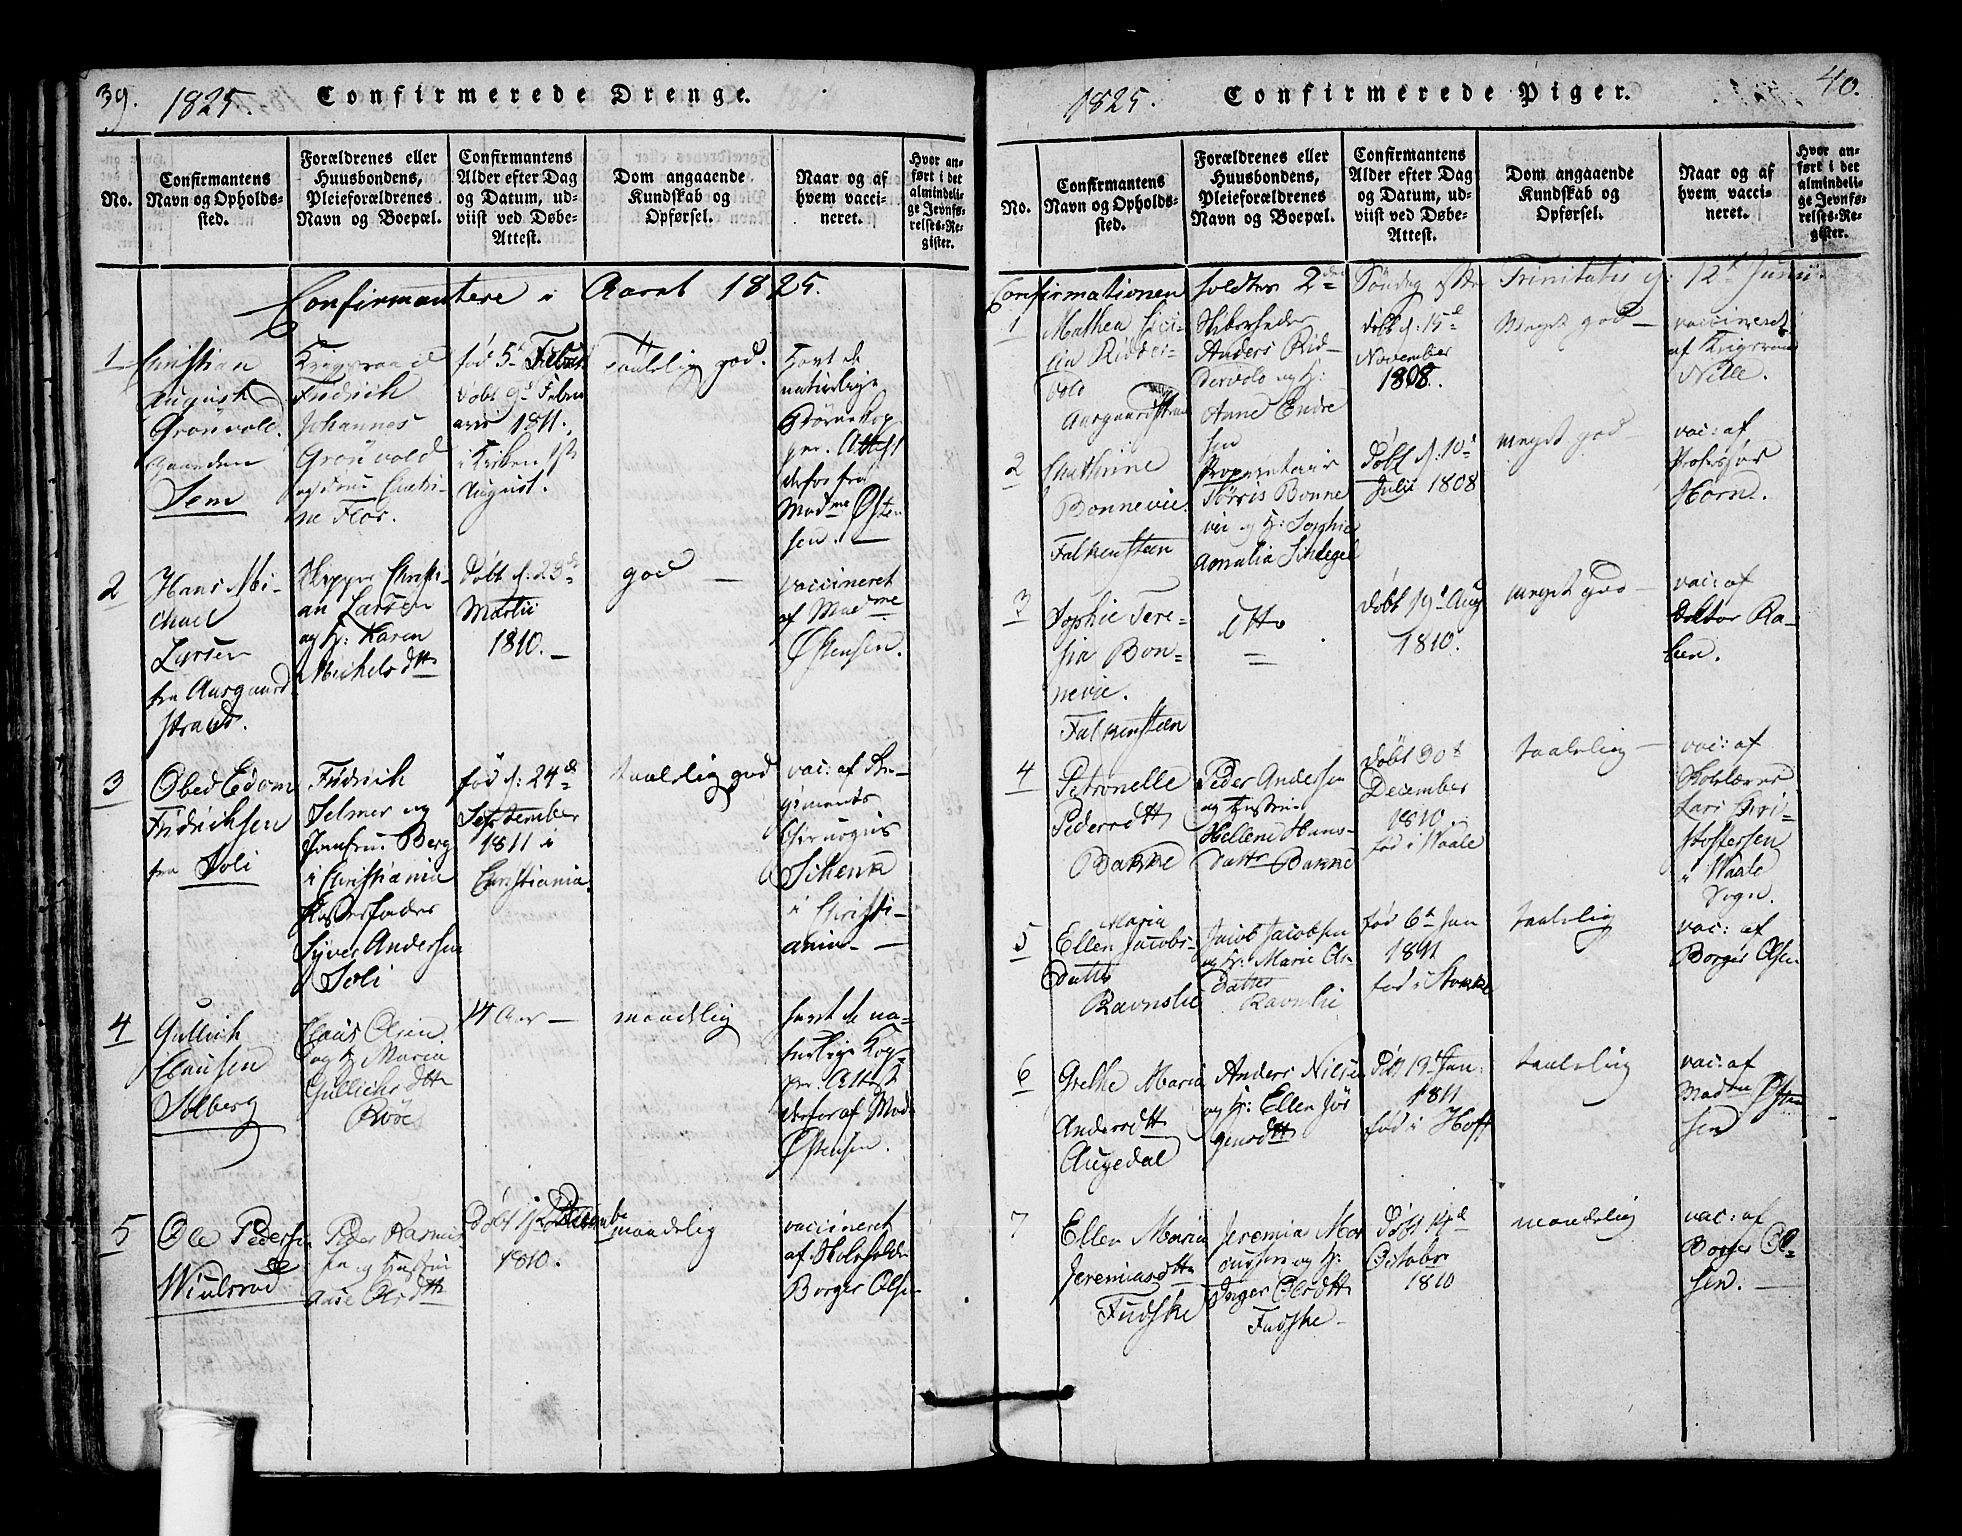 39.
1825.
Confirmerede Drenge.
No.
Confirmantens
Navn og Opholds-
sted.
Forældrenes eller
Huusbondens,
Pleieforældrenes
Navn og Boepæl.
Confirmantens
Alder efter Dag
og Datum, ud-
viist ved Døbe-
Attest.
Dom angaaende
Kundskab og
Opførsel.
Naar og af
hvem vacci-
neret.
Hvor an-
ført i det
almindeli-
ge Jevnfø-
relses-Re-
gister.
Confirmantere i Aaret 1825.
1
Christian
August
Grönvold.
gaarden
Sem
Krigsraad
Fridrich
Johannes
Grönvold
og Cathri-
ne Flor.
fød 5 Februar
döbt 9d Febru
arii 1811.
i Kirken 1st
August.
Taalelig god.
Havt de
naturlige
Börnekop
per. Attest
derfor fra
Madme Østen
sen.
2
Hans Mi-
chael
Larsen
fra Aasgaard
strand.
Skipper Christi-
an Larsen
og H: Karen
Michelsdtt
Döbt d: 23d
Martii
1810.
god
vaccineret
af Madme
Østensen.
3
Obed Edom
Fridrichsen
fra Soli
Fridrich
Selmer og
Jomfrue Berg
i Christiania
Fosterfader
Syver Andersen
Soli
fød d: 24de
September
1811 i
Christiania.
taalelig god
vac: af Re-
giments
Chirurgus
Schenk
i Christi-
ania
4
Gullich
Clausen
Solberg
Claus Olsen
og H Maria
Gullichsdtt
14 Aar
maadelig
havt de na-
turlige Kop
per. Attest
derfor af Mad
Østensen.
5
Ole Pedersen
Peder Rasmus
sen og Hustru
Aase Olsdtt
Döbt Decembe
1810.
maadelig
vaccineret
af Skoleholder
Borger Olsen
1825.
Confirmerede Piger.
40.
No.
Confirmantens
Navn og Opholds-
sted.
Forældrenes eller
Huusbondens,
Pleieforældrenes
Navn og Boepæl.
Confirmantens
Alder efter Dag
og Datum, ud-
viist ved Døbe-
Attest.
Dom angaaende
Kundskab og
Opførsel.
Naar og af
hvem vacci-
neret.
Hvor an-
ført i det
almindeli-
ge Jevnfø-
relses-Re-
gister.
Confirmationen holdtes 2den Söndag efter Trinitatis d: 12te Junii.
1
Mathea Ceci-
lia Ridder-
vold
Aasgaardstrand
Anders Rid-
dervold og H:
Anne Endre
sen
döbt d: 15d
November
1808.
Meget god
vaccineret
af Krigsraad
2
Cathrine
Bonnevie.
Falkensteen
Proprietair
Törris Bonne
vie og H: Sophie
Amalia Schlegel
Döbt d: 10d
Julii 1808
meget god
vac: af
Professor
Horn.
3
Sophie Tere-
sia Bon-
nevie.
Falkensteen
dtto
döbt 19d Aug
1810.
meget god
vac: af
Doktor
4
Petronelle
Pedersdtt
Bakke
Peder Andersen
og Hustrue
Hellene Hans-
datter Bakke
döbt 30d
December
1810.
fød i Waale
taalelig
vac: af
Skolelærer
Lars Chri-
stoffersen
i Waale
Sogn.
5
Maria
Ellen Jacobs-
datter
Ravnslie
Jacob Jacobsen
og H: Marie Ols-
datter
Ravnslie
fød 6te Jan
1811
fød i Stokke
taalelig
vac: af
Borger Olsen
6
Grethe Maria
Andersdtt
Augedal
Anders Nilsen
og H: Ellen Jör
gensdtt
Död 19d Jan:
1811
fød i Hoff
taalelig
vac: af
Madme Østen
sen
7
Ellen Maria
Jeremiasdtter
Fudske
Jeremias Mar
cussen og H:
Inger Olsdtt
Fudske
Döbt 14d
October
1810
maadelig
vac: af
Borger Ol-
sen.